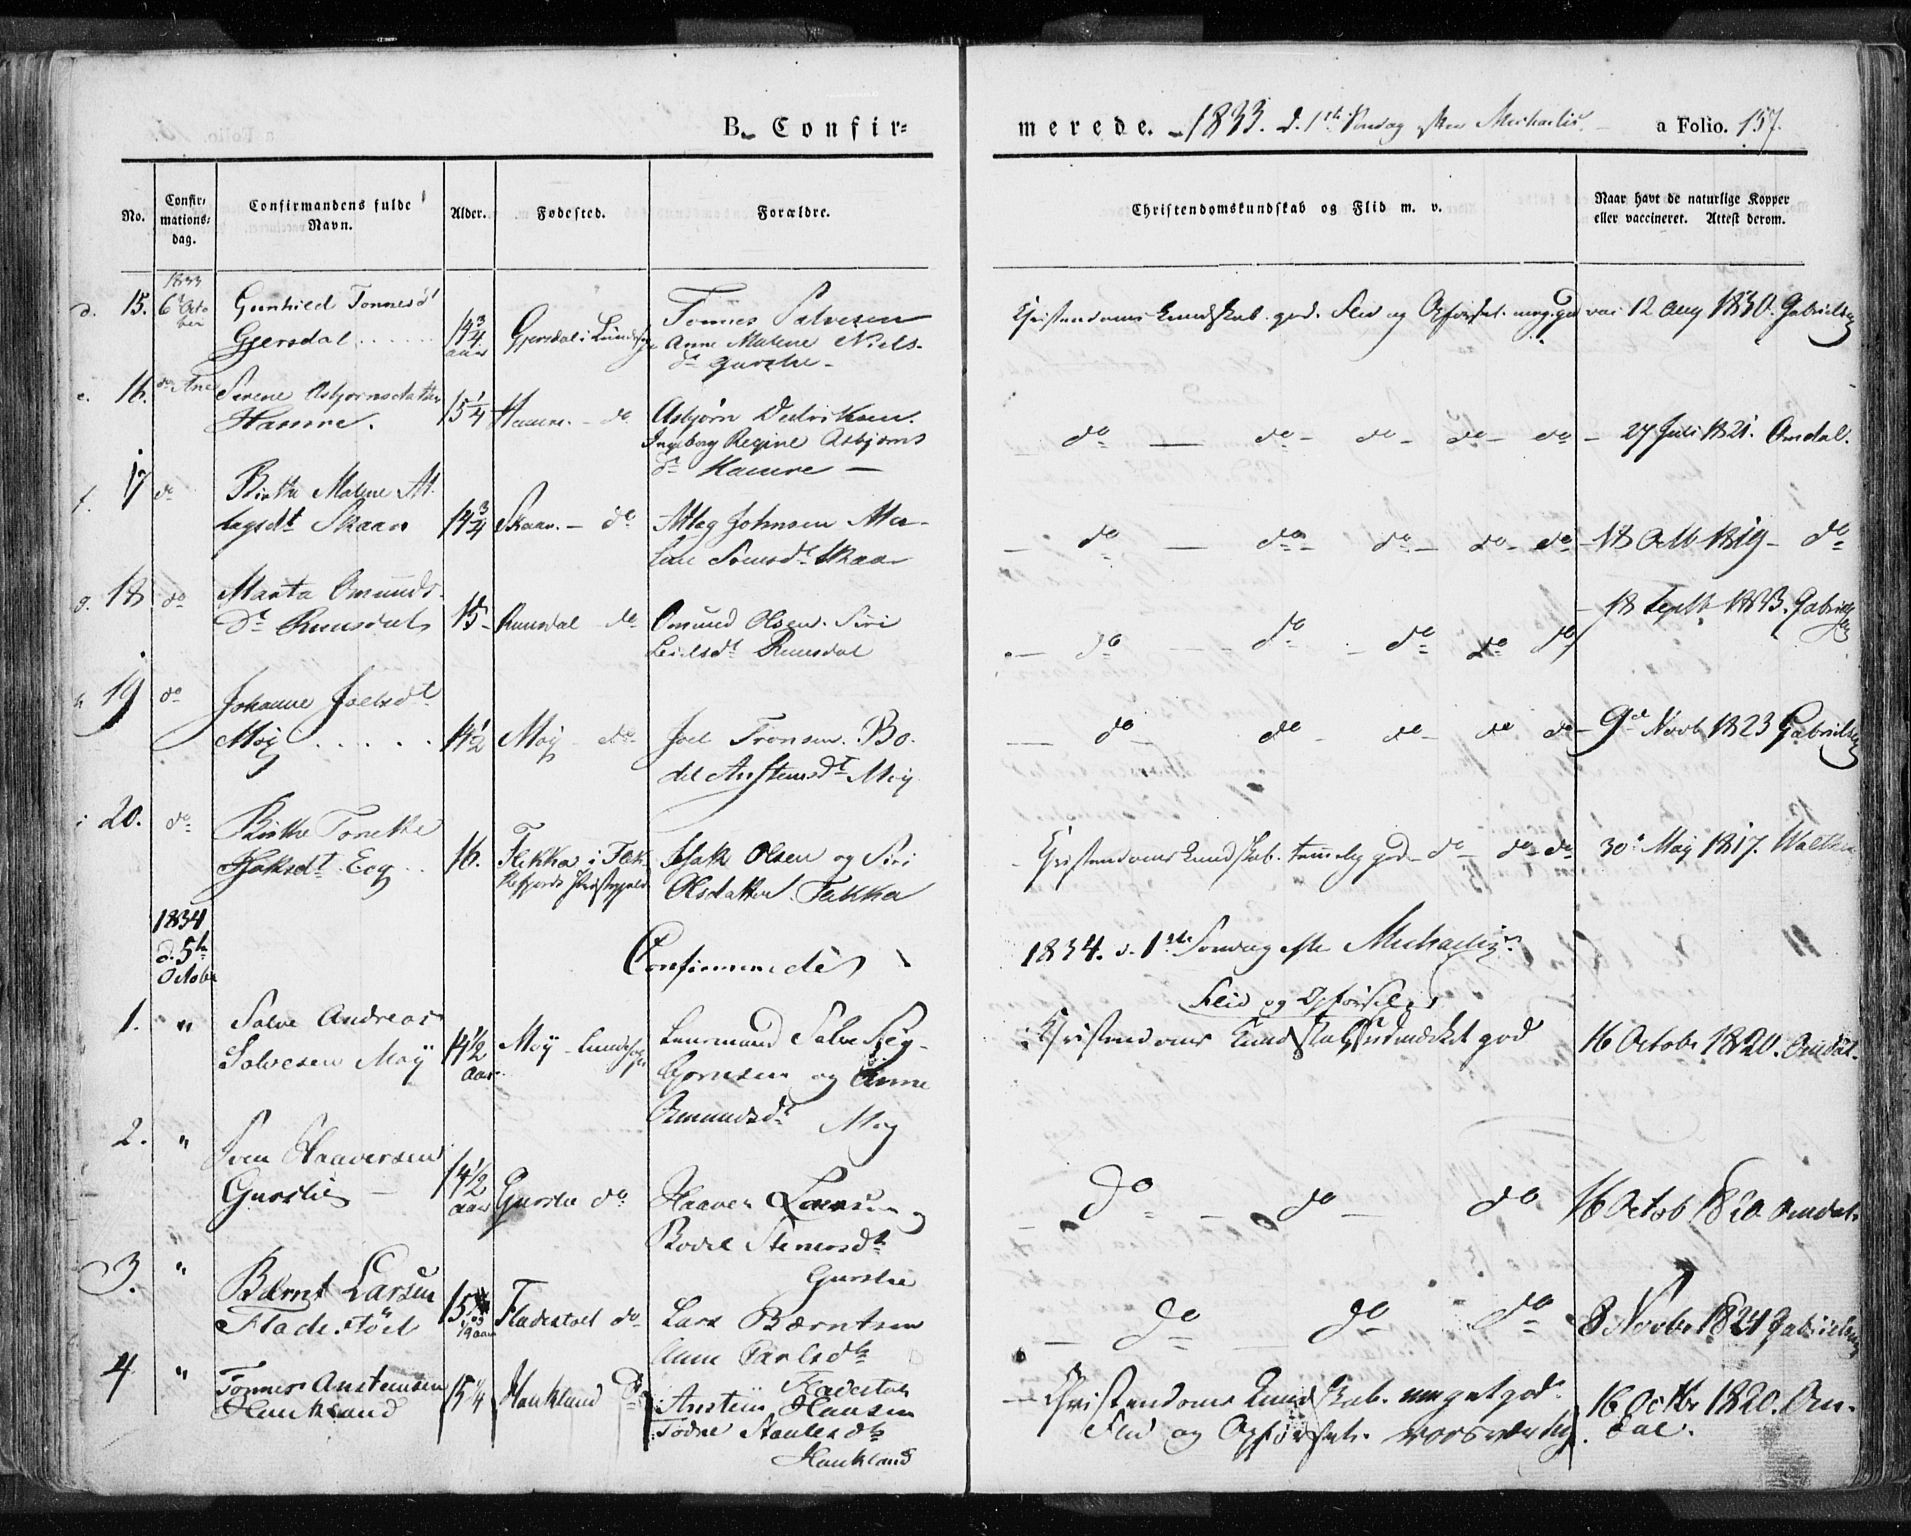 B. Confirmerede. 1833. d. 1ste Søndag efter Michaelis. a Folio. 157.
No.
Confirmationsdag.
Confirmandens fulde Navn.
Alder.
Fødested.
Forældre.
Christendomskundskab og Flid m. v.
Naar havt de naturlige Kopper eller vaccineret. Attest derom.
d. 15.
1833
6te October
Gunhild Tonnesdt
Gjersdal
14 3/4 aar
Gjersdal i Lunds
Tonnes Salvesen
Anne Malene Niels-
dt Gurstie -
Christendoms Kundskab. god. Flid og Opførsel. meg. god
vac 12 Aug 1830. Gabrielsen
e. 16.
do
Serene Asbjornsdatter
Hamre.
15 1/4
Hamre. - do
Asbjørn Dedriksen.
Ingeborg Regine Asbjørns
dt Hamre -
do - do - do - do - do
27 Juli 1821. Omdal.
f. 17
do
Birthe Malene At-
lagsdt Skaar
14 3/4
Skaar. - do
Atlag Johnsen Ma-
lene dt Skaar
- do - do - do - do - do
18 Octb 1819 - do
g. 18
do
Marta Omunds-
dt Ruusdal
15
Ruusdal do
Omund Olsen. Siri
dt Ruusdal
- do - do - do do do
18 Septb 1833. Gabrielsen
h 19
do
Johanne Joelsdt
Moy
14 1/2
Moy - do
Joel Tronsen. Bo-
del Anstensdt Moy
- do - do - do - do do
9de Novb 1823 Gabrielsen
i 20.
do
Birthe Tonette
dt Eeg
16.
Flikka i Flek-
kefjords Præstegjeld
Olsen og Siri
Olsdatter. Flikka
- Christendoms Kundskab. temelig god - do - do - do
30 May 1817. Walther
1834
d. 5te
October
Confirmerede
1834. d. 1ste Søndag efter Michaelis.
1.
"
Salve Andreas
Salvesen Moÿ
14 1/2 aar
Moÿ - Lunds
Lensmand Salve Sig-
bjørnsen og Anne
Omundsdt Moy
Flid og Opførsel
Christendoms Kundskab udmærket god
16 Octobr 1820. Omdal.
2.
"
Sven Haaversen
Gurstie -
14 1/2 aar
Gurstie do
Haaver Larsen og
Bodil Stensdt
Gurstie
- do - do - do
16 Octob 1820 Omdal.
3.
"
Bærnt Larsen
Fladestöel
15
Fladestoel do
Lars Bærntsen
Anne dt
Fladestoel
- do do do
8 Novbr 1824 Gabrielsen
4
"
Tonnes Anstensen
Haukland
15 1/4
Haukland do
Anstein Hansen
Todne dt
Haukland
- Christendoms Kundskab. meget god.
Flid og Opførsel. roesværdig.
16 Octbr 1820. Om-
dal.